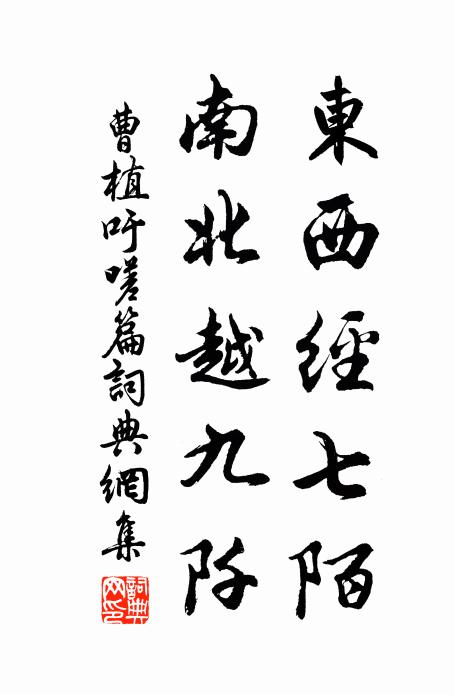 東西經七陌
南北越九阡
曹植吁嗟篇詞典網集
詞典網印